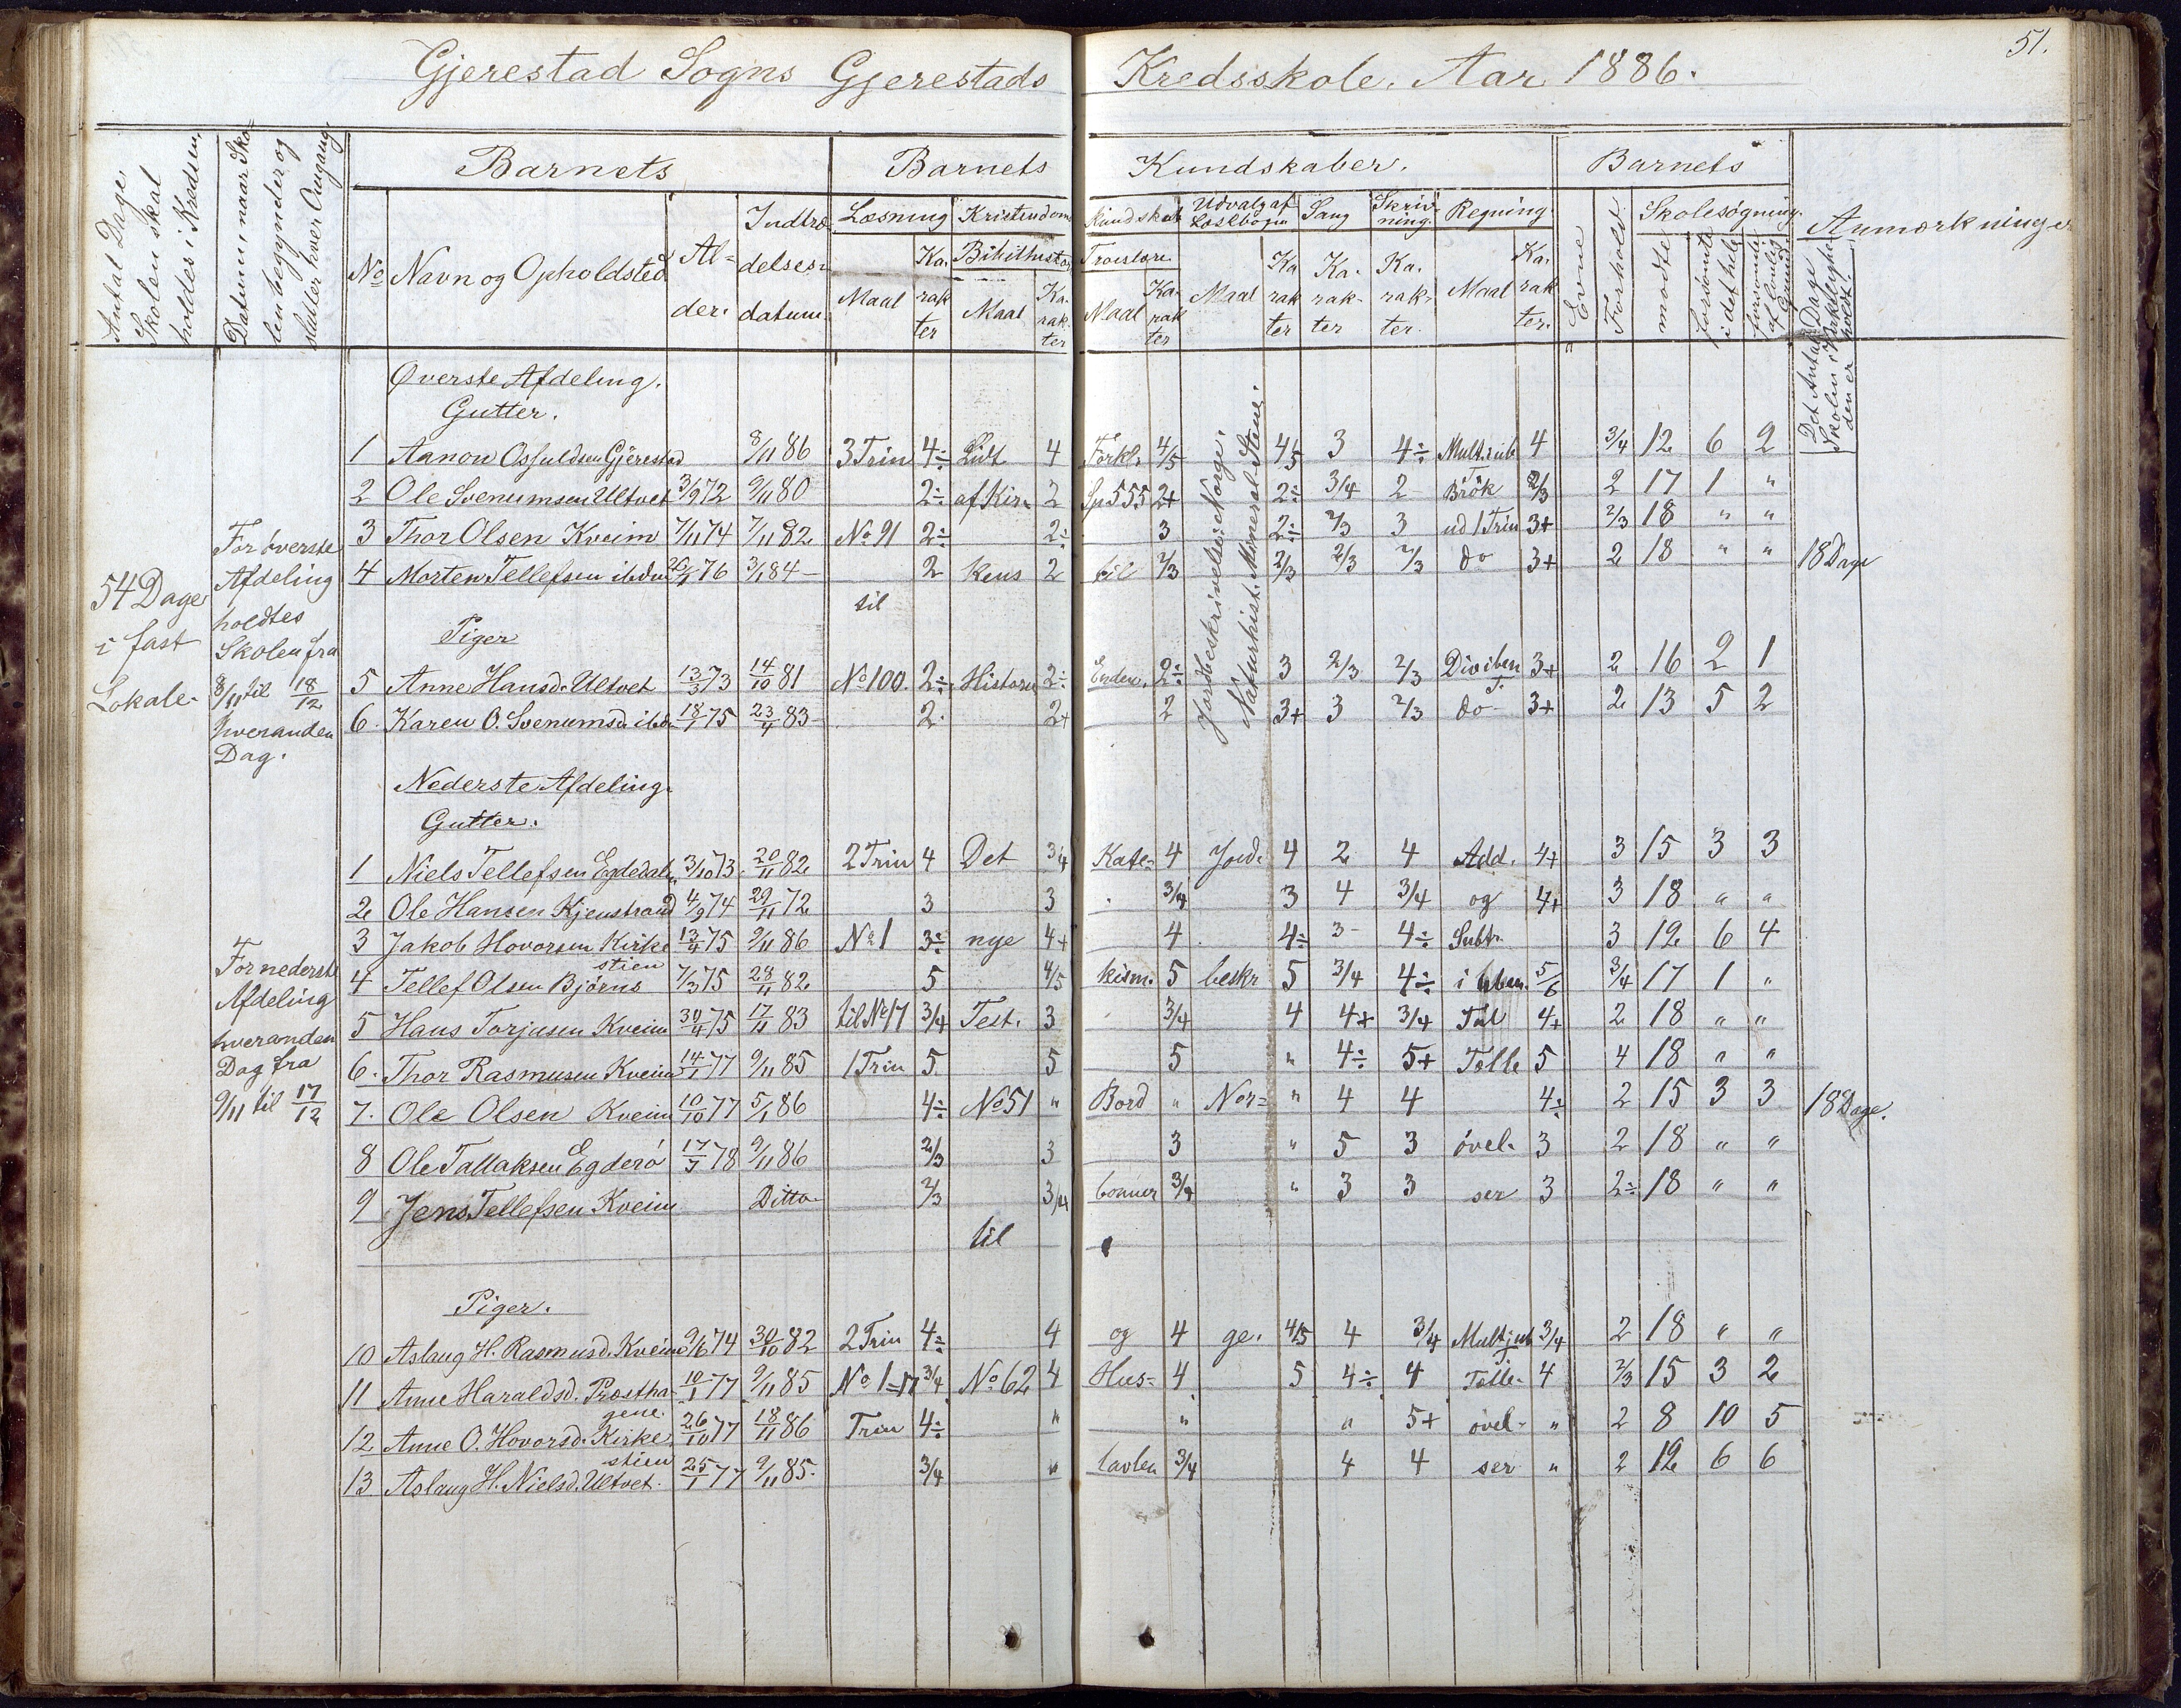 51.
Gjerestad Sogns Gjerestads Kredsskole. Aar 1886.
Antal Dage,
Skolen skal
holdes i Kredsen,
Datum, naar Sko-
len begynder og
slutter hver Omgang.
Barnets
Barnets Kundskaber.
Barnets
Anmærkninger
No Navn og Opholdsted
Al-
der.
Indtræ-
delses-
datum.
Læsning
Maal
Ka-
rak
ter
Kristendoms
Bibelhistor
Maal
Ka-
rak-
ter
Kundskab
Troeslære.
Maal
Ka-
rak
ter
Udvalg af
Læsebogen
Maal
Ka
rak
ter
Sang
Ka-
rak-
ter
Skriv-
ning.
Ka-
rak-
ter.
Regning
Maal
Ka-
rak
ter.
Evne
Forhold
Skolesøgning.
mødte
forsømte
i det hele
forsømte
af lovlig
Grund
Det Antal Dage
Skolen i Virkeligheden
er holdt.
54 Dage
i fast
Lokale.
For øverste
Afdeling
holdtes
Skolen fra
8/11 til 18/12
hveranden
Dag.
Øverste Afdeling.
Gutter.
1 Aanon Osfuldsen Gjerestad 8/11 86 3 Trin 4÷ Lidt 4 Forkl. 4/5 4/5 3 4÷ Mult. i ub 4 3/4 12 6 2
2 Ole Svenumsen Ultvet 3/9 72 9/11 80 2÷ af Kir- 2 Sp 555 2+ 2÷ 3/4 2 Brök 2/3 2 17 1 "
3 Thor Olsen Kveim 7/11 74 7/11 82 No 91 2÷ 2÷ 3 2÷ 2/3 3 ud 1 Trin 3+ 2/3 18 " "
4 Morten Tellefsen ibdm 76 3/1 84 2 kens 2 til 2/3 2/3 2/3 2/3 do 3+ 2 18 " " 18 Dage
til
Jordbeskrivelse: Norge.
Naturhist. Mineral-Stene.
Piger
5 Anne Hansd. Ultvet 13/3 73 14/10 81 No 100. 2÷ Historie 2÷ Enden. 2÷ 3 2/3 2/3 Div i ben 3+ 2 16 2 1
T.
6. Karen O. Svenumsd. ibdm 18/1 75 23/4 83 2. 2+ 2 3+ 3 2/3 do 3+ 2 13 5 2
Nederste Afdeling.
Gutter.
For nederste
Afdeling
hveranden
Dag fra
9/11 til 17/12
1 Niels Tellefsen Egdedalen 3/10 73 20/11 82 2 Trin 4 Det 3/4 Kate- 4 Jord- 4 2 4 Add. 4+ 3 15 3 3
2 Ole Hansen Kjenstrand 4/9 74 29/11 72 3 3 3/4 3 4 3/4 og 4+ 3 18 " "
3 Jakob Hovorsen Kirke 13/4 75 9/11 86 No 1 3÷ nye 4+ 4 4÷ 3 4÷ Subtr. 3 12 6 4
stien
4 Tellef Olsen Björns 7/3 75 28/11 82 5 4/5 kism. 5 beskr 5 3/4 4÷ i uben. 5/6 3/4 17 1 "
5 Hans Torjusen Kveim 30/4 75 17/11 83 til No 17 3/4 Test. 3 3/4 4 4+ 3/4 Tal 4+ 2 18 " "
6. Thor Rasmusen Kveim 14/1 77 9/11 85 1 Trin 5 5 5 " 4÷ 5+ Tælle 5 4 18 " "
7. Ole Olsen Kveim 10/10 77 5/1 86 4÷ No 51 " Bord " Nor= " 4 4 4÷ 2 15 3 3 18 Dage.
8 Ole Tallaksen Egderö 17/7 78 9/11 86 2/3 3 3 " 5 3 övel- 3 2 18 " "
9 Jens Tellefsen Kveim Ditto 2/3 3/4 bönner 3/4 " 3 3 ser 3 2÷ 18 " "
til
Piger.
10 Aslaug H. Rasmusd. Kveim 9/6 74 30/10 82 2 Trin 4÷ 4 og 4 ge. 4/5 4 3/4 Mult i ub 3/4 2 18 " "
11 Anne Haraldsd. Prostha- 10/1 77 9/11 85 No 1-17 3/4 No 62 4 Hus- 4 5 4÷ 4 Tælle- 4 2/3 15 3 2
gene.
12 Anne O. Hovorsd. Kirke 26/10 77 18/11 86 Trin 4÷ " " " 5+ övel- " 2 8 10 5
stien
13 Aslaug H. Nielsd. Ultvet. 25/1 77 9/11 85. 3/4 " tavlen 3/4 4 4 ser " 2 12 6 6